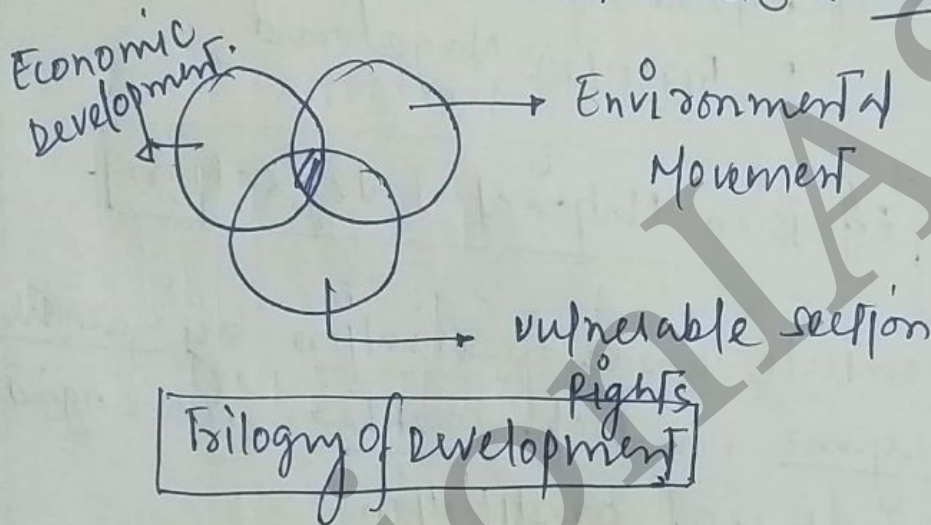 Economic
Development.
Environmental
Movement
vulnerable section
Rights
Trilogy of Development